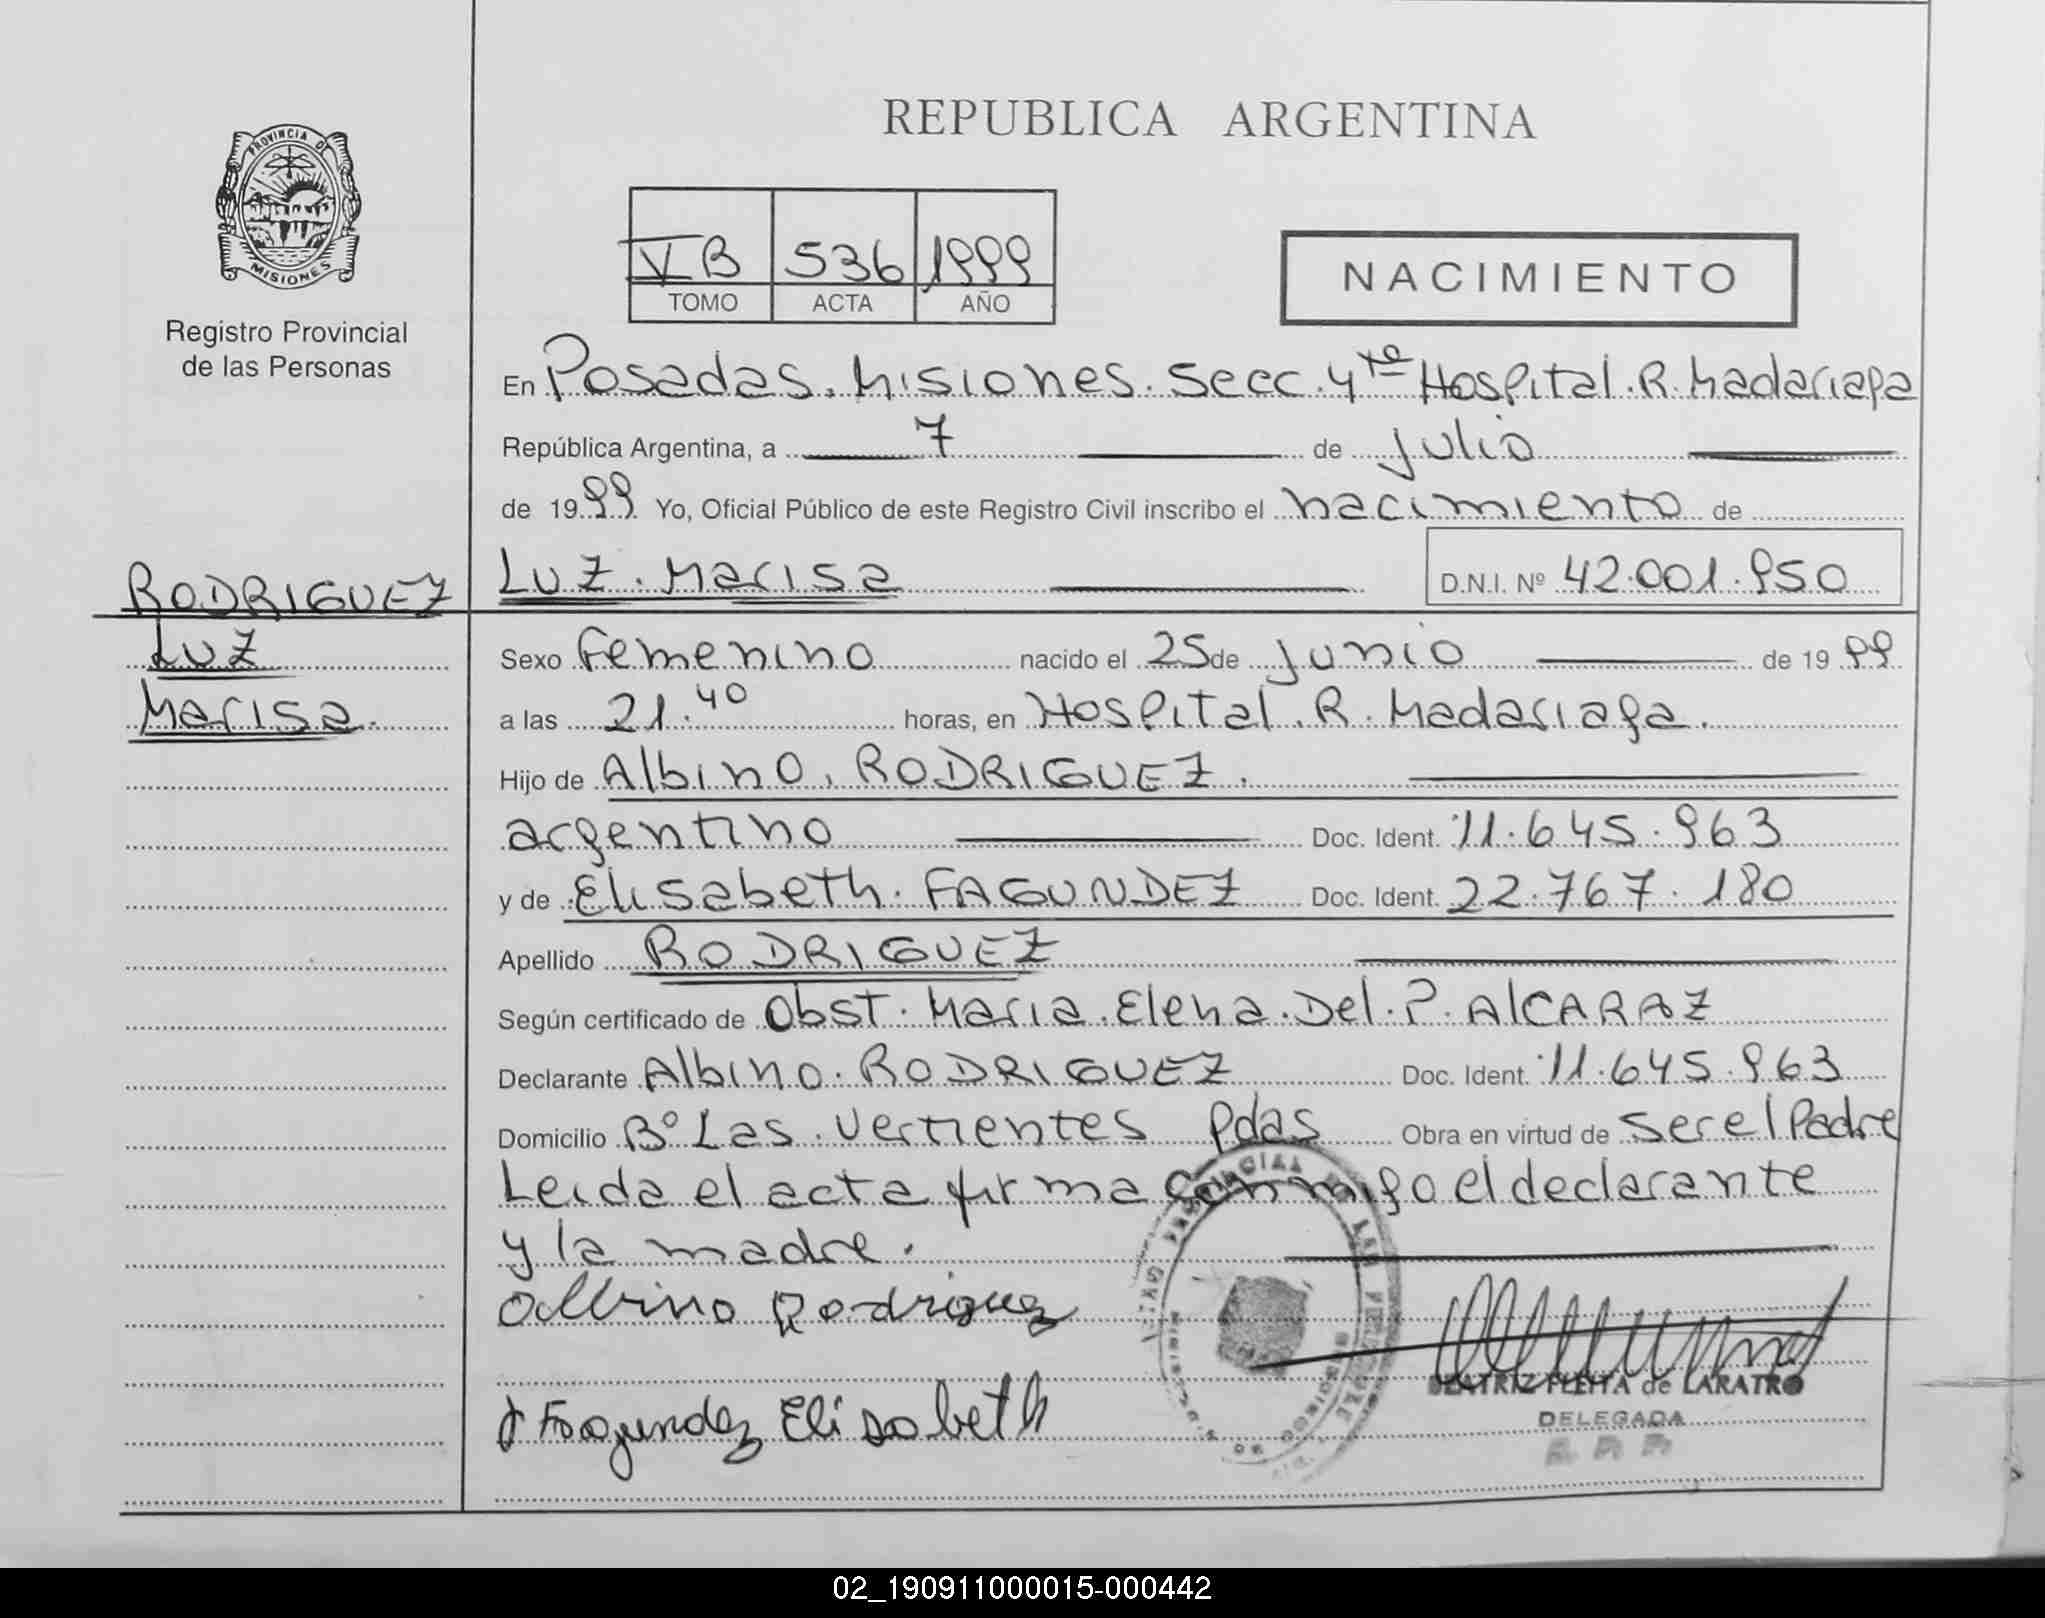 REPUBLICA ARGENTINA
PROVINCIA DE
MISIONES
Registro Provincial
de las Personas
V B 536 1999
TOMO ACTA AÑO
NACIMIENTO
En Posadas. Misiones. Secc. 4ta Hospital. R. Madariaga
República Argentina, a 7 de julio
de 1999 Yo, Oficial Público de este Registro Civil inscribo el nacimiento de
Luz. Marisa D.N.I. Nº 42.001.950
RODRIGUEZ
Luz
Marisa.
Sexo Femenino nacido el 25 de junio de 1999
a las 21.40 horas, en Hospital. R. Madariaga.
Hijo de Albino. RODRIGUEZ.
argentino Doc. Ident. 11.645.963
y de Elisabeth. FAGUNDEZ Doc. Ident. 22.767.180
Apellido RODRIGUEZ
Según certificado de Obst. Maria. Elena. Del. P. AlCARAZ
Declarante Albino. RODRIGUEZ Doc. Ident. 11.645.963
Domicilio Bº Las. Vertientes Pdas Obra en virtud de ser el Padre
Leida el acta firma conmigo el declarante
y la madre.
Albino Rodriguez
Fagundez Elisabeth
BEATRIZ FLEITA de LARATRO
DELEGADA
02_190911000015-000442